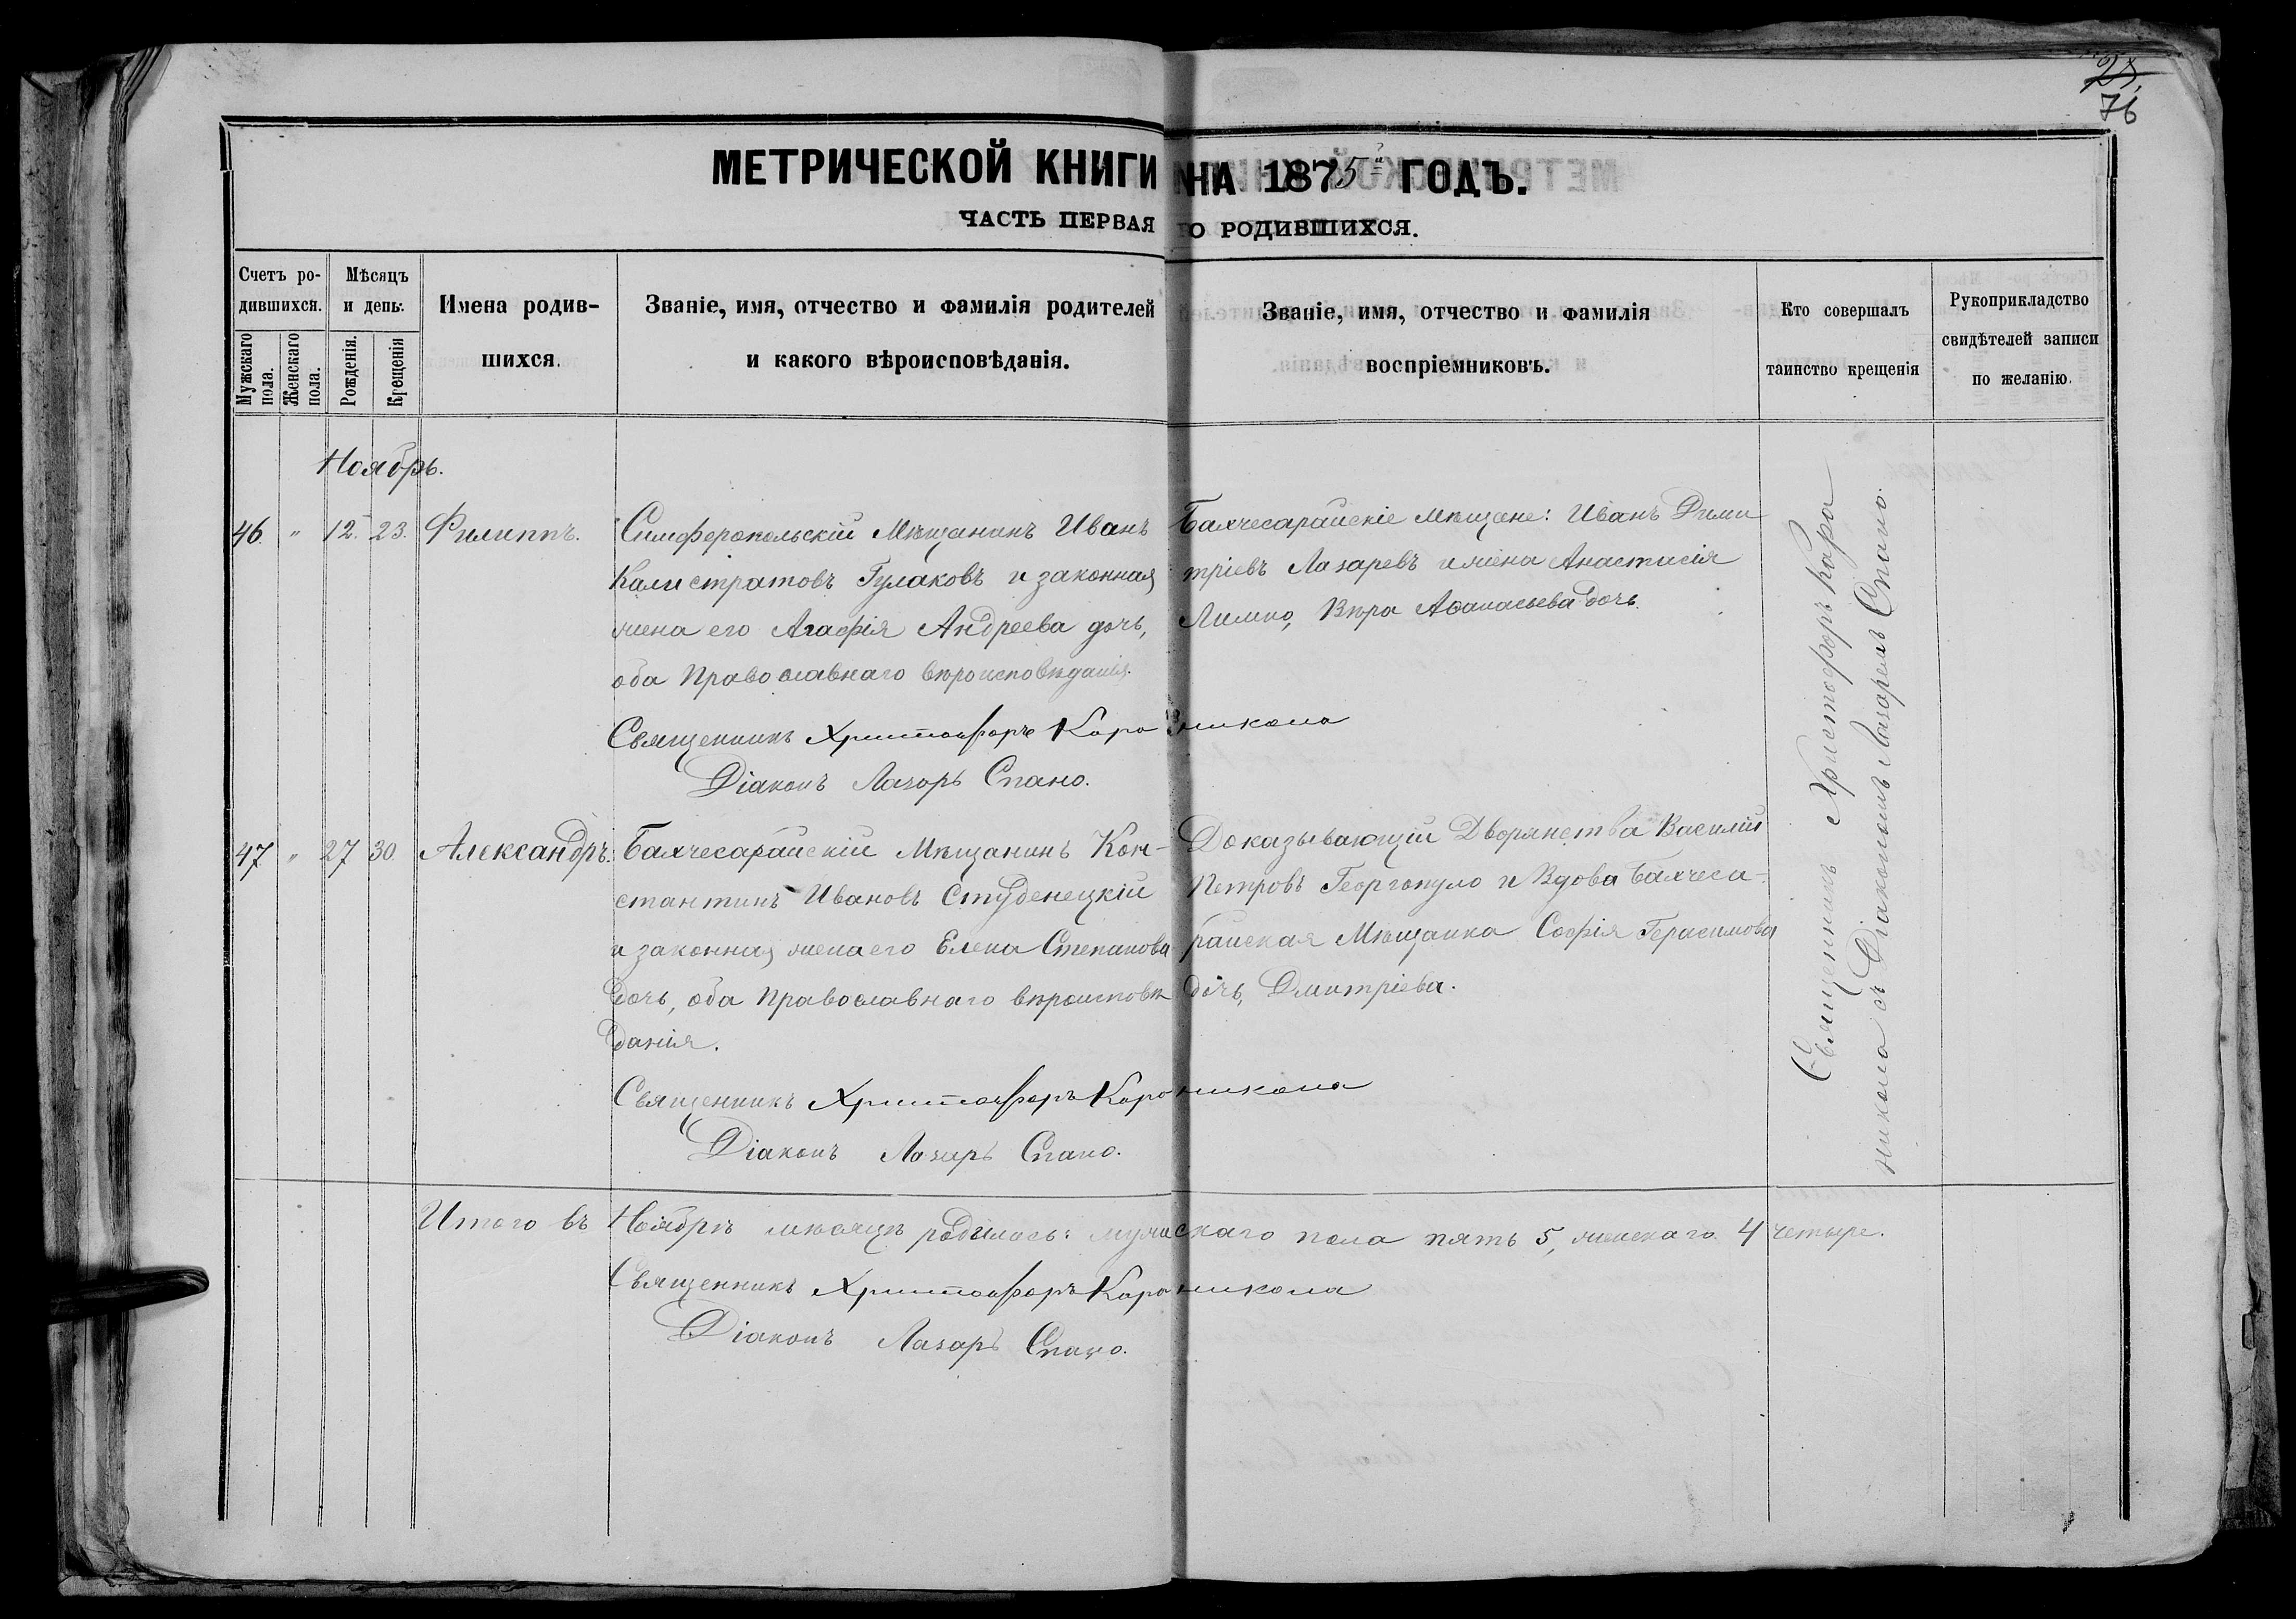 25
76
МЕТРИЧЕСКОЙ КНИГИ НА 1875й ГОДЪ.
ЧАСТЬ ПЕРВАЯ О РОДИВШИХСЯ.
Счетъ ро-
дившихся.
Мужскаго
пола.
Женскаго
пола.
Мѣсяцъ
и день.
Рожденія.
Крещенія
Имена родив-
шихся.
Званіе, имя, отчество и фамилія родителей
и какого вѣроисповѣданія.
Званіе, имя, отчество и фамилія
воспріемниковъ.
Кто совершалъ
таинство крещенія
Рукоприкладство
свидѣтелей записи
по желанію.
Ноябрь.
46. " 12. 23. Филиппъ.
Симферопольскій Мѣщанинъ Иванъ
Калистратовъ Гулаковъ и законная
жена его Агафія Андреева дочь,
оба Православнаго вѣроисповѣданія.
Бахчесарайскіе Мѣщане: Иванъ Дими
тріевъ Лазаревъ и жена Анастасія
Вѣра Аѳанасьева дочь.
Священникъ Христофоръ Караникола
Діаконъ Лазарь Спано.
47 " 27 30. Александръ.
Бахчесарайскій Мѣщанинъ Кон-
стантинъ Ивановъ Студенецкій
и законная жена его Елена Степанова
дочь, оба Православнаго вѣроисповѣ
данія.
Доказывающій Дворянства Василій
Петровъ Георгопуло и Вдова Бахчеса-
райская Мѣщанка Софія Герасимова
дочь, Дмитріева.
Священникъ Христофоръ Караникола
Діаконъ Лазарь Спано.
Священникъ Христофоръ Кара
никола съ Діакономъ Лазаремъ Спано.
Итого въ Ноябрѣ мѣсяцѣ родилось: мужскаго пола пять 5, женскаго 4 четыре.
Священникъ Христофоръ Караникола
Діаконъ Лазарь Спано.